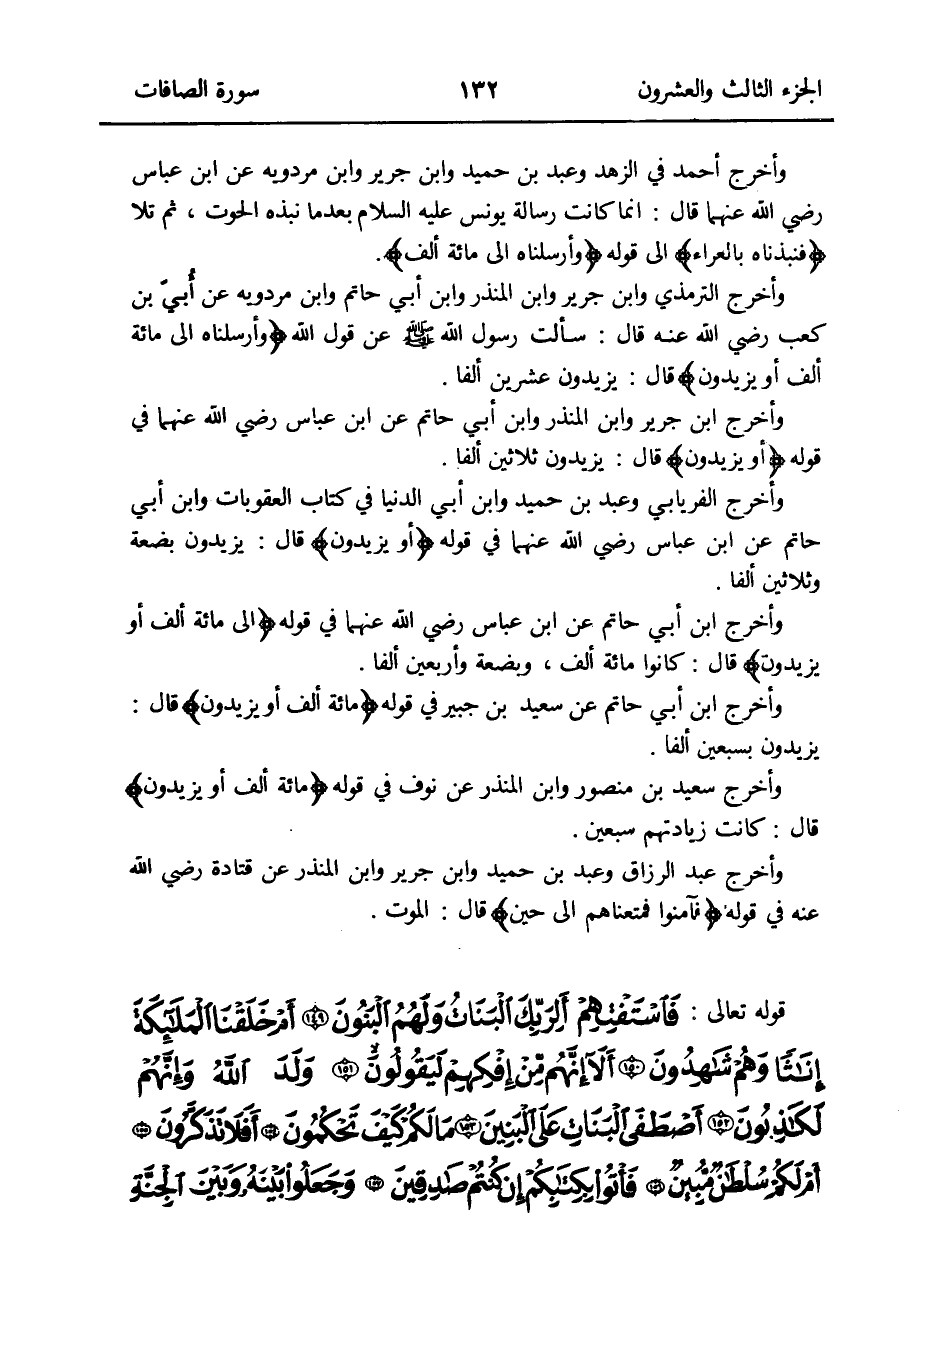 الجزء الثالث والعشرون ١٣٢ سورة الصافات
وأخرج أحمد في الزهد وعبد بن حميد وابن جرير وابن مردويه عن ابن عباس
رضي الله عنهما قال : انما كانت رسالة يونس عليه السلام بعدما نبذه الحوت ، ثم تلا
﴿فنبذناه بالعراء﴾ الى قوله ﴿وأرسلناه الى مائة ألف﴾.
وأخرج الترمذي وابن جرير وابن المنذر وابن أبي حاتم وابن مردويه عن أُبيّ بن
كعب رضي الله عنه قال : سألت رسول الله ﷺ عن قول الله ﴿وأرسلناه الى مائة
ألف أو يزيدون﴾ قال : يزيدون عشرين ألفا .
وأخرج ابن جرير وابن المنذر وابن أبي حاتم عن ابن عباس رضي الله عنهما في
قوله ﴿أو يزيدون﴾ قال : يزيدون ثلاثين ألفا .
وأخرج الفريابي وعبد بن حميد وابن أبي الدنيا في كتاب العقوبات وابن أبي
حاتم عن ابن عباس رضي الله عنهما في قوله ﴿أو يزيدون﴾ قال : يزيدون بضعة
وثلاثين ألفا .
وأخرج ابن أبي حاتم عن ابن عباس رضي الله عنهما في قوله ﴿الى مائة ألف أو
يزيدون﴾ قال : كانوا مائة ألف ، وبضعة وأربعين ألفا .
وأخرج ابن أبي حاتم عن سعيد بن جبير في قوله ﴿مائة ألف أو يزيدون﴾ قال :
يزيدون بسبعين ألفا .
وأخرج سعيد بن منصور وابن المنذر عن نوف في قوله ﴿مائة ألف أو يزيدون﴾
قال : كانت زيادتهم سبعين .
وأخرج عبد الرزاق وعبد بن حميد وابن جرير وابن المنذر عن قتادة رضي الله
عنه في قوله ﴿فآمنوا فمتعناهم الى حين﴾ قال : الموت .
قوله تعالى : فَاسْتَفْتِهِمْ أَلِرَبِّكَ الْبَنَاتُ وَلَهُمُ الْبَنُونَ ﴿١٤٩﴾ أَمْ خَلَقْنَا الْمَلَٰٓئِكَةَ
إِنَٰثًا وَهُمْ شَٰهِدُونَ ﴿١٥٠﴾ أَلَآ إِنَّهُم مِّنْ إِفْكِهِمْ لَيَقُولُونَ ﴿١٥١﴾ وَلَدَ اللَّهُ وَإِنَّهُمْ
لَكَٰذِبُونَ ﴿١٥٢﴾ أَصْطَفَى الْبَنَاتِ عَلَى الْبَنِينَ ﴿١٥٣﴾ مَا لَكُمْ كَيْفَ تَحْكُمُونَ ﴿١٥٤﴾ أَفَلَا تَذَكَّرُونَ ﴿١٥٥﴾
أَمْ لَكُمْ سُلْطَٰنٌ مُّبِينٌ ﴿١٥٦﴾ فَأْتُوا بِكِتَٰبِكُمْ إِن كُنتُمْ صَٰدِقِينَ ﴿١٥٧﴾ وَجَعَلُوا بَيْنَهُ وَبَيْنَ الْجِنَّةِ